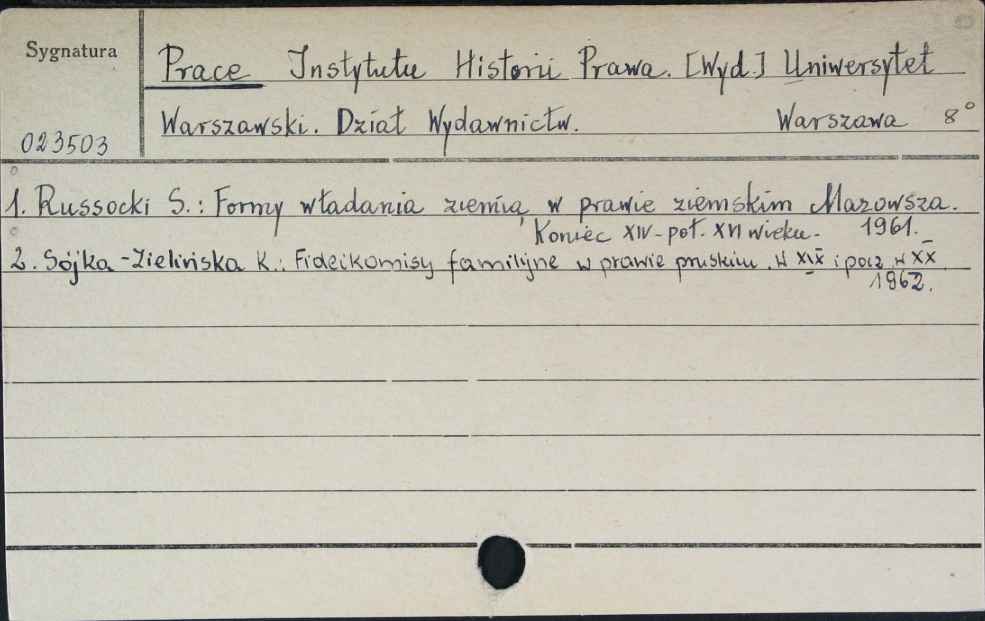 Sygnatura
Prace Instytutu Historii Prawa. [Wyd.] Uniwersytet
Warszawski. Dział Wydawnictw. Warszawa 8°
023503
1. Russocki S.: Formy władania ziemią w prawie ziemskim Mazowsza.
Koniec XIV - poł. XVI wieku. 1961.
2. Sójka-Zielińska K.: Fideikomisy familijne w prawie pruskim. W XIX i pocz. w XX
1962.